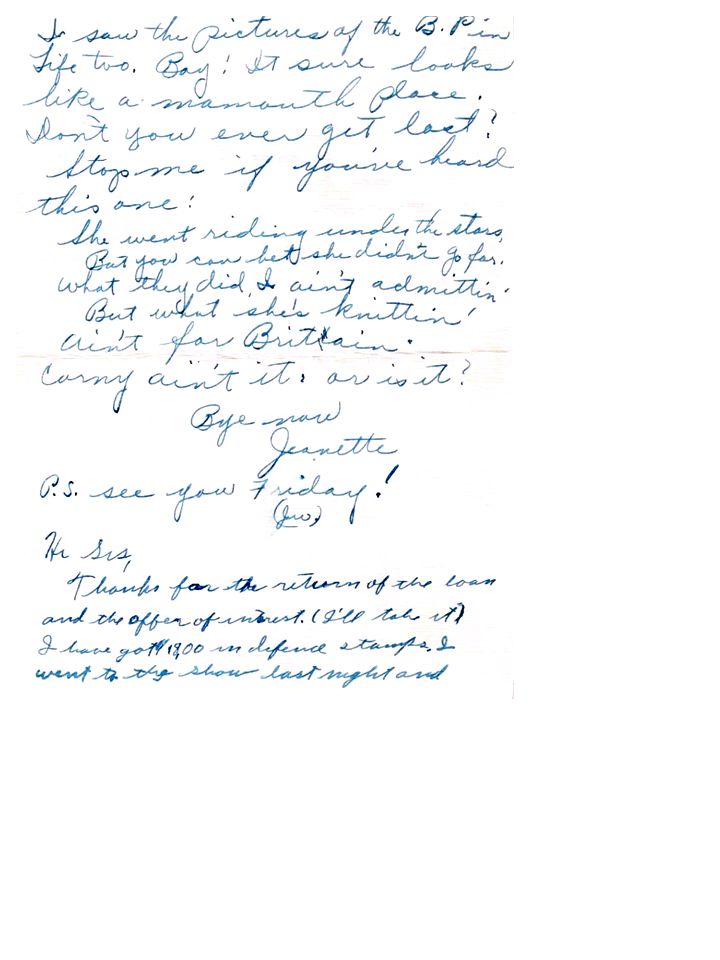 I saw the pictures of the B. P in
Life two. Boy! It sure looks
like a mamouth place.
Don't you ever get lost?
Stop me if you've heard
this one:
She went riding under the stars,
But you can bet she didn't go far.
What they did I ain't admittin'
But what she's knittin'
ain't for Britain.
Corny ain't it, or is it?
Bye now
Jeanette
P.S. see you Friday!
Hi Sis,
Thanks for the return of the loan
and the offer of interest. (I'll take it)
I have got $18,00 in defence stamps. I
went to the show last night and